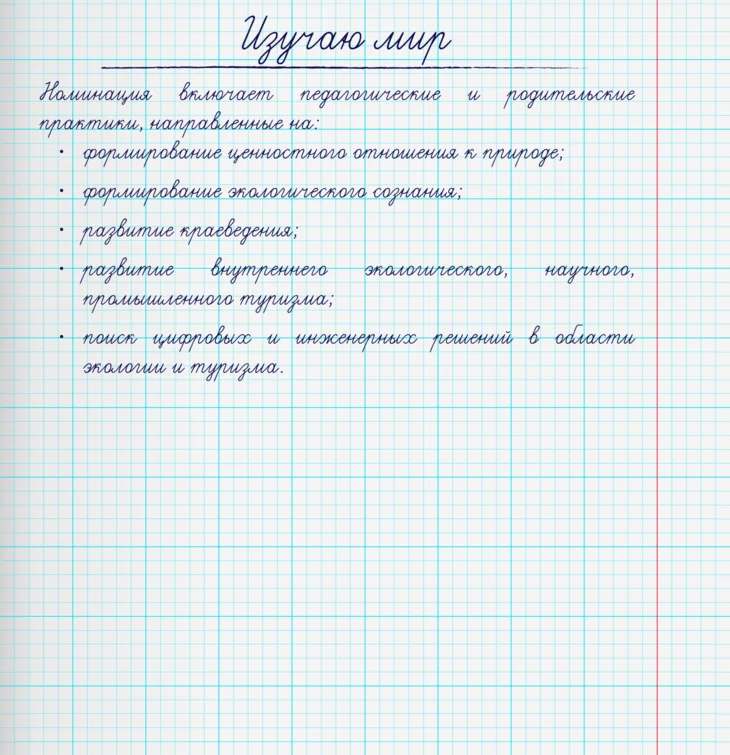 Изучаю мир
Номинация включает педагогические и родительские
практики, направленные на:
• формирование ценностного отношения к природе;
• формирование экологического сознания;
• развитие краеведения;
• развитие внутреннего экологического, научного,
промышленного туризма;
• поиск цифровых и инженерных решений в области
экологии и туризма.